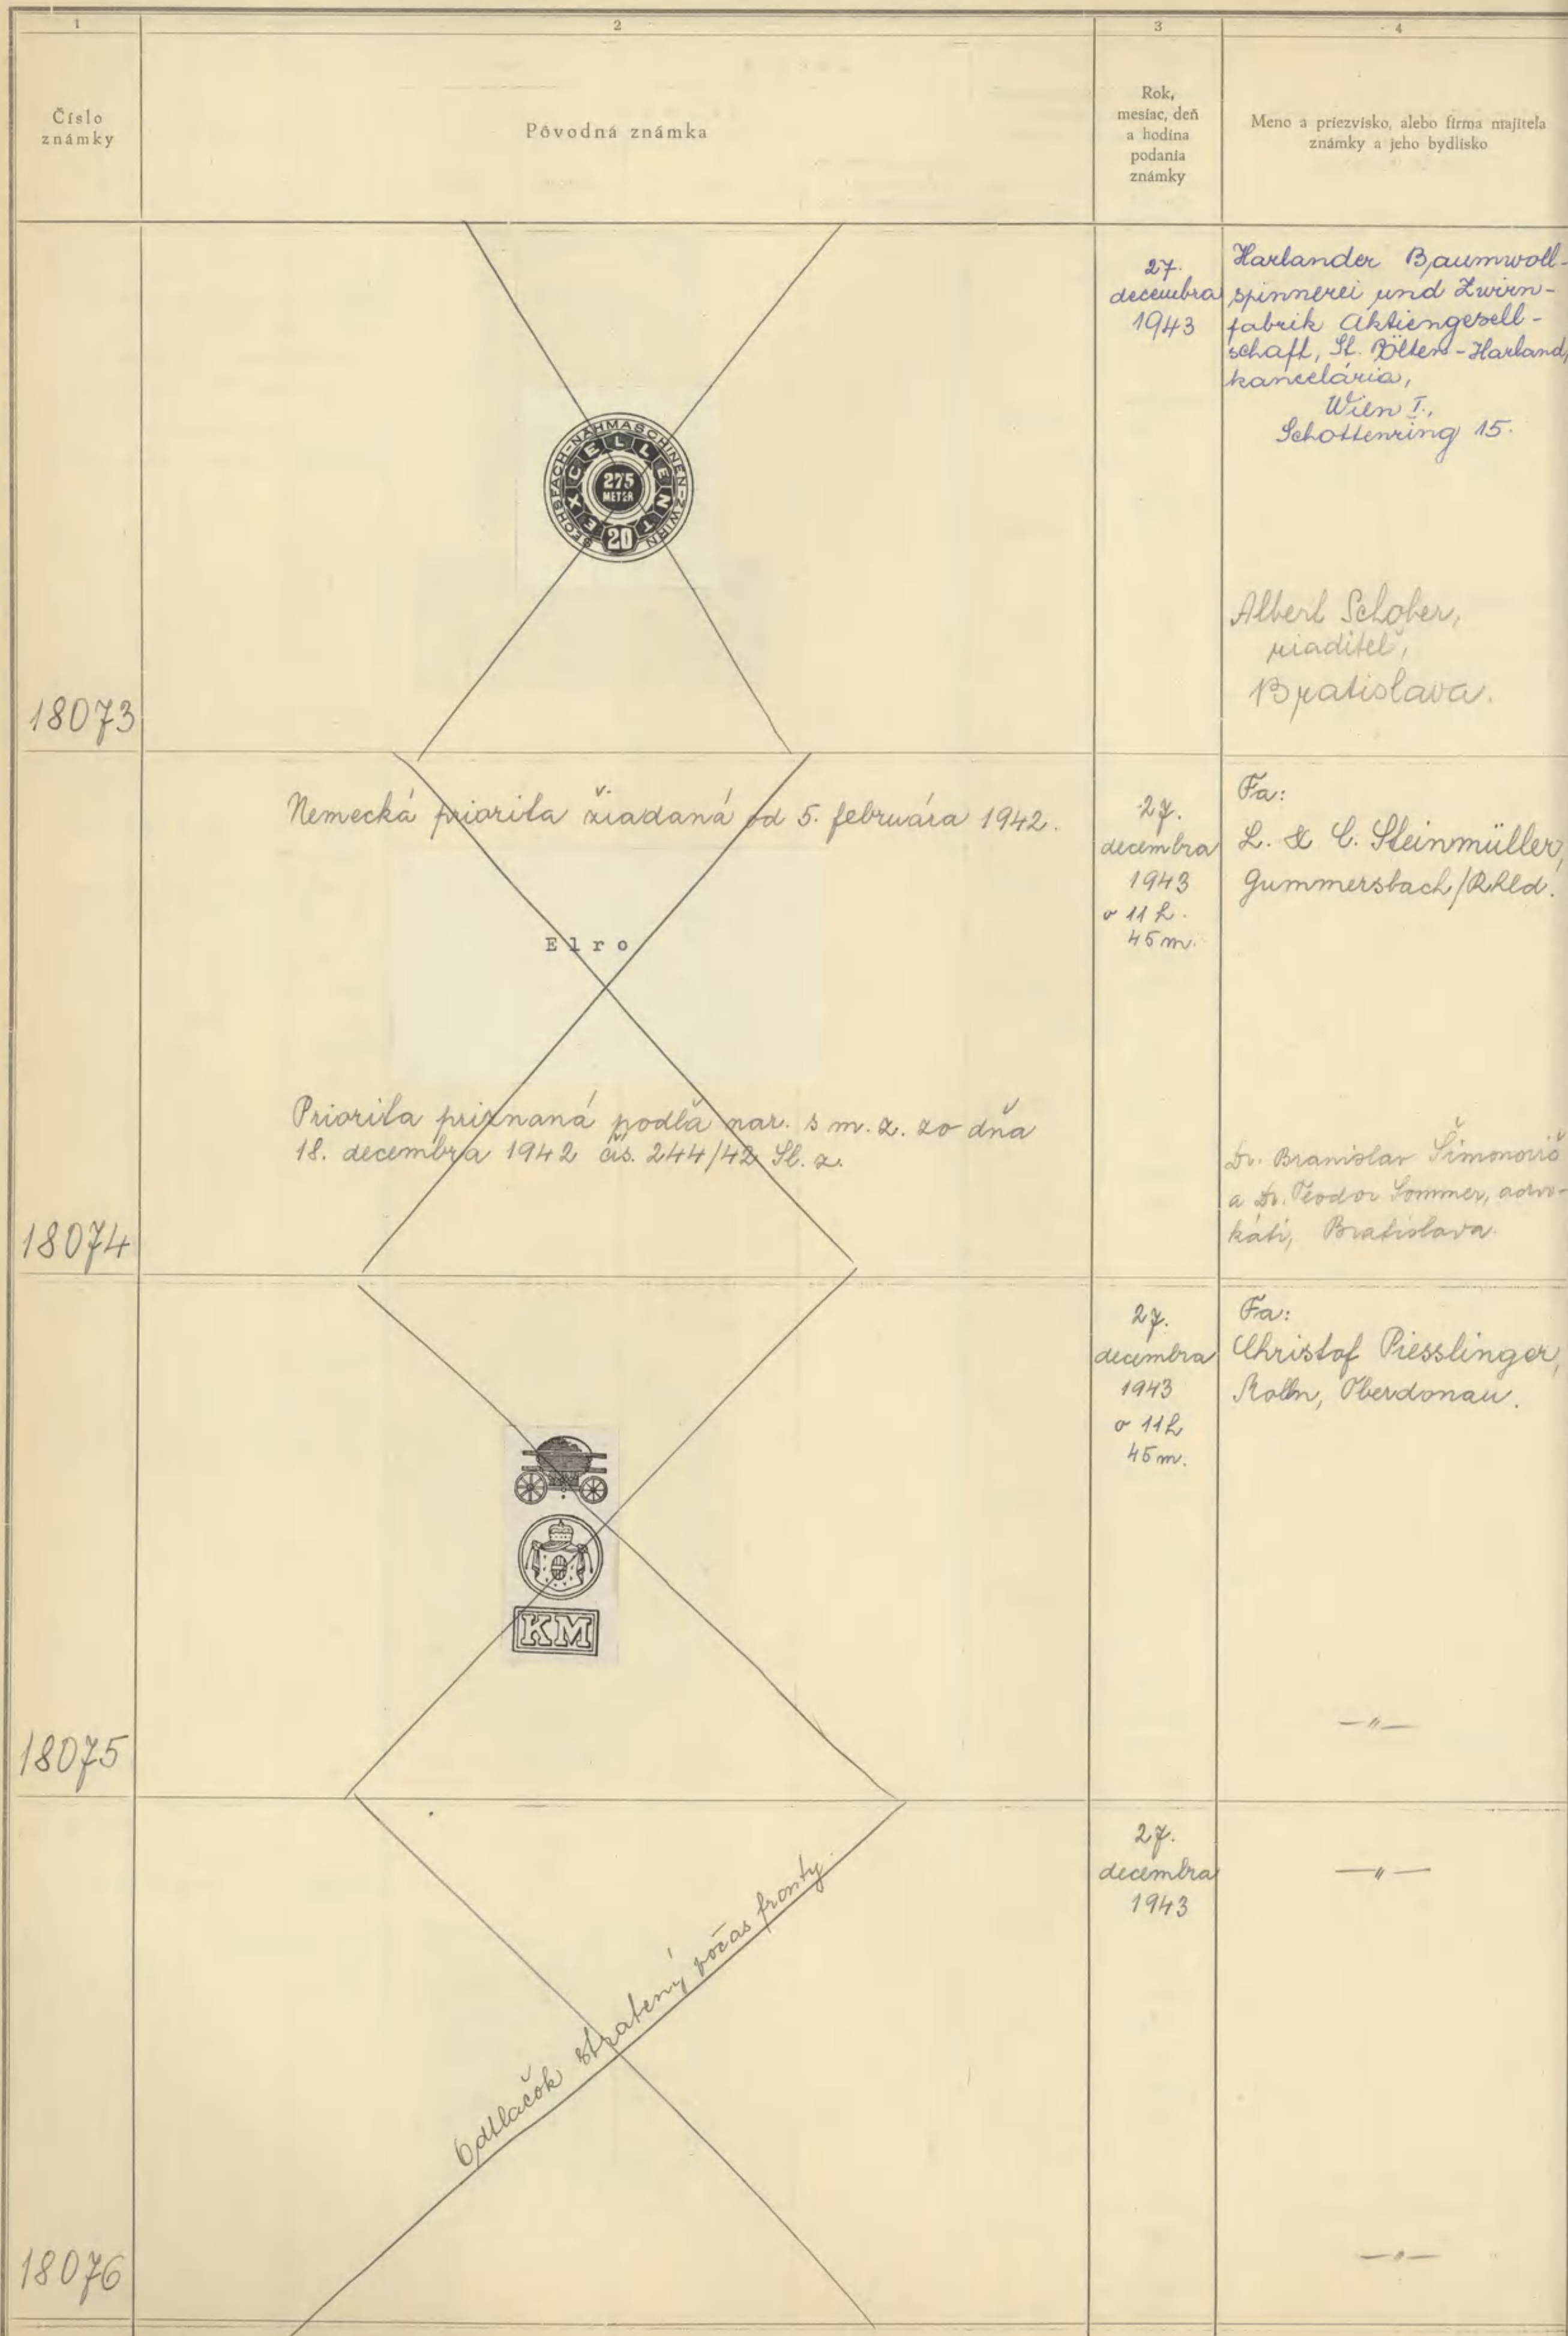 1
2
3
4
Číslo
známky
Pôvodná známka
Rok,
mesiac, deň
a hodina
podania
známky
Meno a priezvisko, alebo firma majiteľa
známky a jeho bydlisko
18073
SECHSFACH-NÄHMASCHINEN-ZWIRN
EXCELLENT
275
METER
20
27.
decembra
1943
Harlander Baumwoll-
spinnerei und Zwirn-
fabrik Aktiengesell-
schaft, St. Pölten-Harland,
kancelária,
Wien I.,
Schottenring 15.
Albert Schober,
riaditeľ,
Bratislava.
18074
Nemecká priorita žiadaná od 5. februára 1942.
Elro
Priorita priznaná podľa nar. s m. z. zo dňa
18. decembra 1942 čís. 244/42 Sl. z.
27.
decembra
1943
o 11 h.
45 m.
Fa:
L. & C. Steinmüller,
Gummersbach/Rhld.
Dr. Branislav Šimonovič
a Dr. Teodor Sommer, advo-
káti, Bratislava.
18075
KM
27.
decembra
1943
o 11 h
45 m.
Fa:
Christof Piesslinger,
Molln, Oberdonau.
—〃—
18076
Odtlačok stratený počas fronty.
27.
decembra
1943
—〃—
—〃—